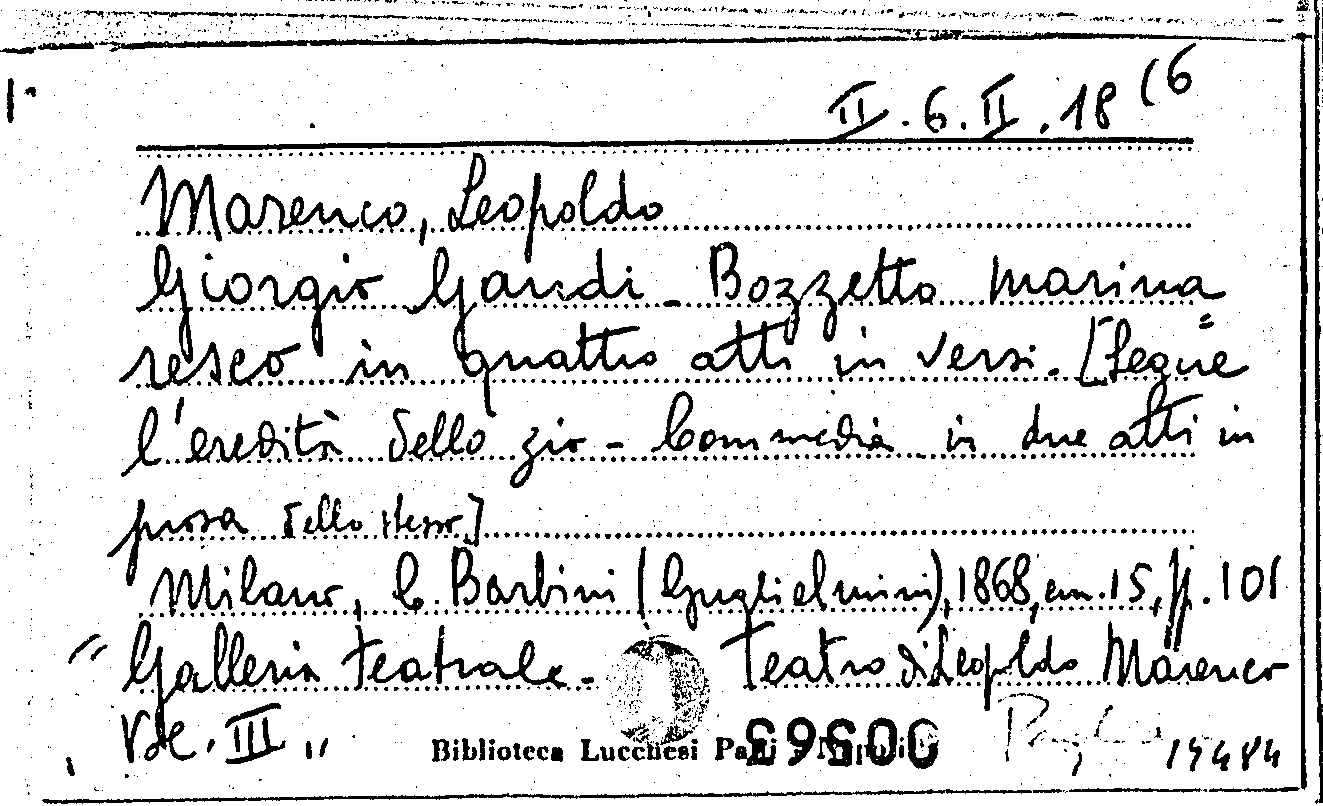 II.6.II.18 (6
Marenco, Leopoldo
Giorgio Gandi - Bozzetto marina=
resco in quattro atti in versi. [Segue
l'eredità dello zio - Commedia in due atti in
prosa dello stesso]
Milano, C. Barbini (Guglielmini), 1868, cm. 15, pp. 101
"Galleria teatrale - Teatro di Leopoldo Marenco
Vol. III"
Biblioteca Lucchesi Palli